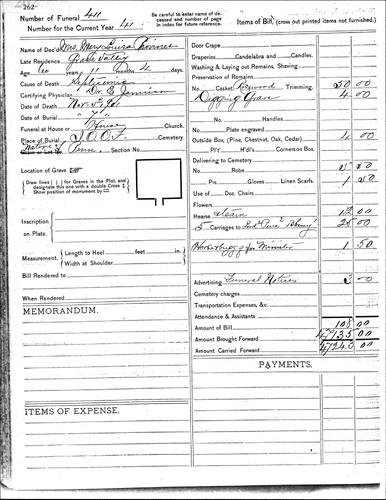 262
Number of Funeral 411
Number for the Current Year 41
Be careful to enter name of deceased and number of page in index for future reference.
Items of Bill, (cross out printed items not furnished.)
Name of Dec'd Mrs.
Late Residence Grass Valley
Age 60 11 2 days.
Cause of Death
Certifying Physician Dr. E. Jamison
Date of Death Nov. 5
Date of Burial " 7 "
Funeral at House or House Church.
Place of Burial I.O.O.F. Cemetery.
Native of Penn. Section No.
Location of Grave
Draw lines for Graves in the Plot, and
designate this one with a double Cross
Show position of monument by
Inscription
on Plate.
Measurement, Length to Heel feet in.
Width at Shoulder
Bill Rendered to
When Rendered
MEMORANDUM.
ITEMS OF EXPENSE.
Door Crape
Draperies Candelabra and Candles.
Washing & Laying out Remains, Shaving
Preservation of Remains
No. Casket Redwood Trimming. 50 00
Digging Grave 4 00
No. Handles
No. Plate engraved
Outside Box, (Pine, Chestnut, Oak, Cedar) 00
P'lY H'dl's Corners on Box.
Delivering to Cemetery
No. Robe
Prs. Gloves Linen Scarfs. 1 50
Use of Doz. Chairs
Flowers
Hearse 12 00
5 Carriages to 25 00
Horse & buggy for Minister 1 50
Advertising Funeral Notices 3 00
Cemetery charges
Transportation Expenses, &c.
Attendance & Assistants
Amount of Bill 108 00
Amount Brought Forward 47135 00
Amount Carried Forward 47243 00
PAYMENTS.